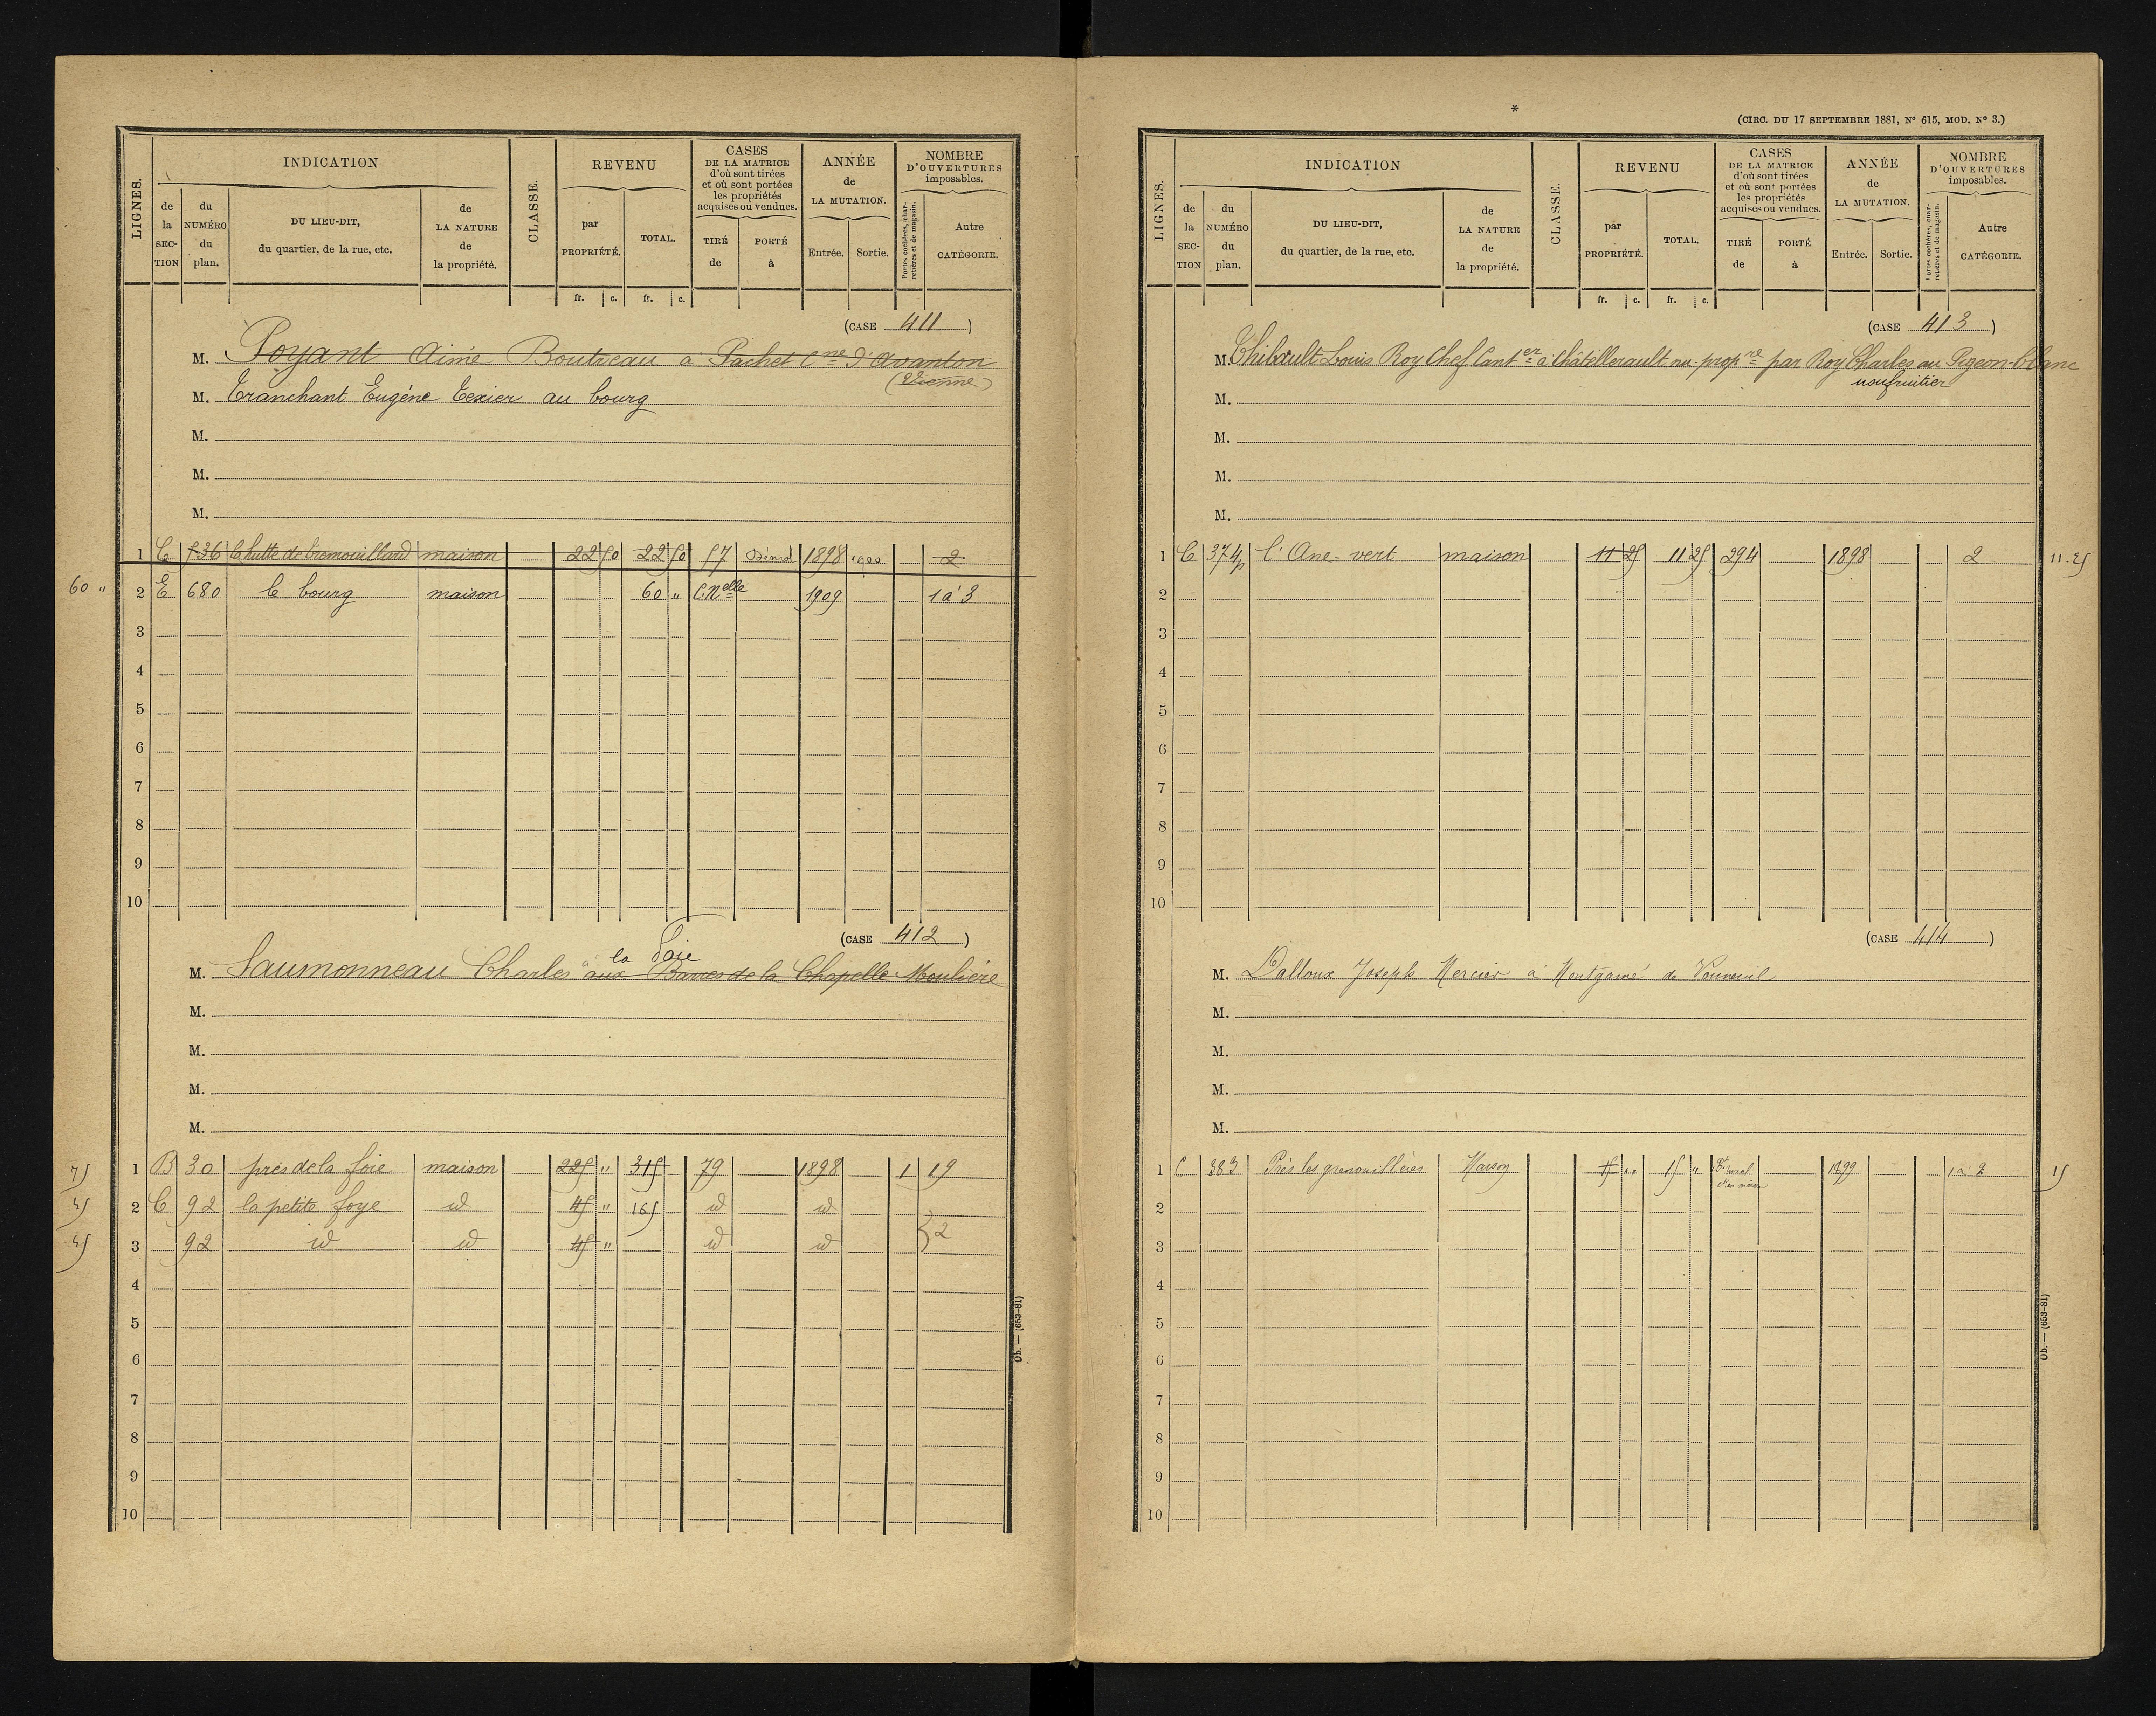 LIGNES.
INDICATION
CLASSE.
REVENU
CASES
DE LA MATRICE
d'où sont tirées
et où sont portées
les propriétés
acquises ou vendues.
ANNÉE
de
LA MUTATION.
NOMBRE
D'OUVERTURES
imposables.
de la SEC-TION
du NUMÉRO du plan.
DU LIEU-DIT,
du quartier, de la rue, etc.
de LA NATURE de la propriété.
par PROPRIÉTÉ.
TOTAL.
TIRÉ de
PORTÉ à
Entrée.
Sortie.
Portes cochères, charretières et de magasin.
Autre CATÉGORIE.
fr. c. fr. c.
(CASE 411 )
M. Poyant Aimé Boutreau à Pachet Cne d'Avanton
(Vienne)
M. Tranchant Eugène Texier au bourg
M.
M.
M.
1 C 536 maison 22 50 22 50 57 1898 1900 2
60 " 2 E 680 le bourg maison 60 " C. Nelle 1909 1 à 3
3
4
5
6
7
8
9
10
(CASE 412 )
à la Foie
M. Saumonneau Charles aux Barres de la Chapelle Moulière
M.
M.
M.
M.
75 1 B 30 près de la foie maison 225 " 315 79 1898 1 19
45 2 C 92 la petite foye id 45 " 165 id id
45 3 92 id id 45 " id id } 2
4
5
6
7
8
9
10
Ob. — (653-81)
*
(CIRC. DU 17 SEPTEMBRE 1881, N° 615, MOD. N° 3.)
LIGNES.
INDICATION
CLASSE.
REVENU
CASES
DE LA MATRICE
d'où sont tirées
et où sont portées
les propriétés
acquises ou vendues.
ANNÉE
de
LA MUTATION.
NOMBRE
D'OUVERTURES
imposables.
de la SEC-TION
du NUMÉRO du plan.
DU LIEU-DIT,
du quartier, de la rue, etc.
de LA NATURE de la propriété.
par PROPRIÉTÉ.
TOTAL.
TIRÉ de
PORTÉ à
Entrée.
Sortie.
Portes cochères, charretières et de magasin.
Autre CATÉGORIE.
fr. c. fr. c.
(CASE 413 )
M. Thibault Louis Roy Chef Canter à Châtellerault nu-propre par Roy Charles au Pigeon-blanc
usufruitier
M.
M.
M.
M.
1 C 374p l'Ane-vert maison 11 25 11 25 294 1898 2 11.25
2
3
4
5
6
7
8
9
10
(CASE 414 )
M. Dalloux Joseph Mercier à Montgamé de Vouneuil
M.
M.
M.
M.
1 C 383 Près les grenouillères Maison 15 " 15 " 1899 1 à 2 15
2
3
4
5
6
7
8
9
10
Ob. — (653-81)